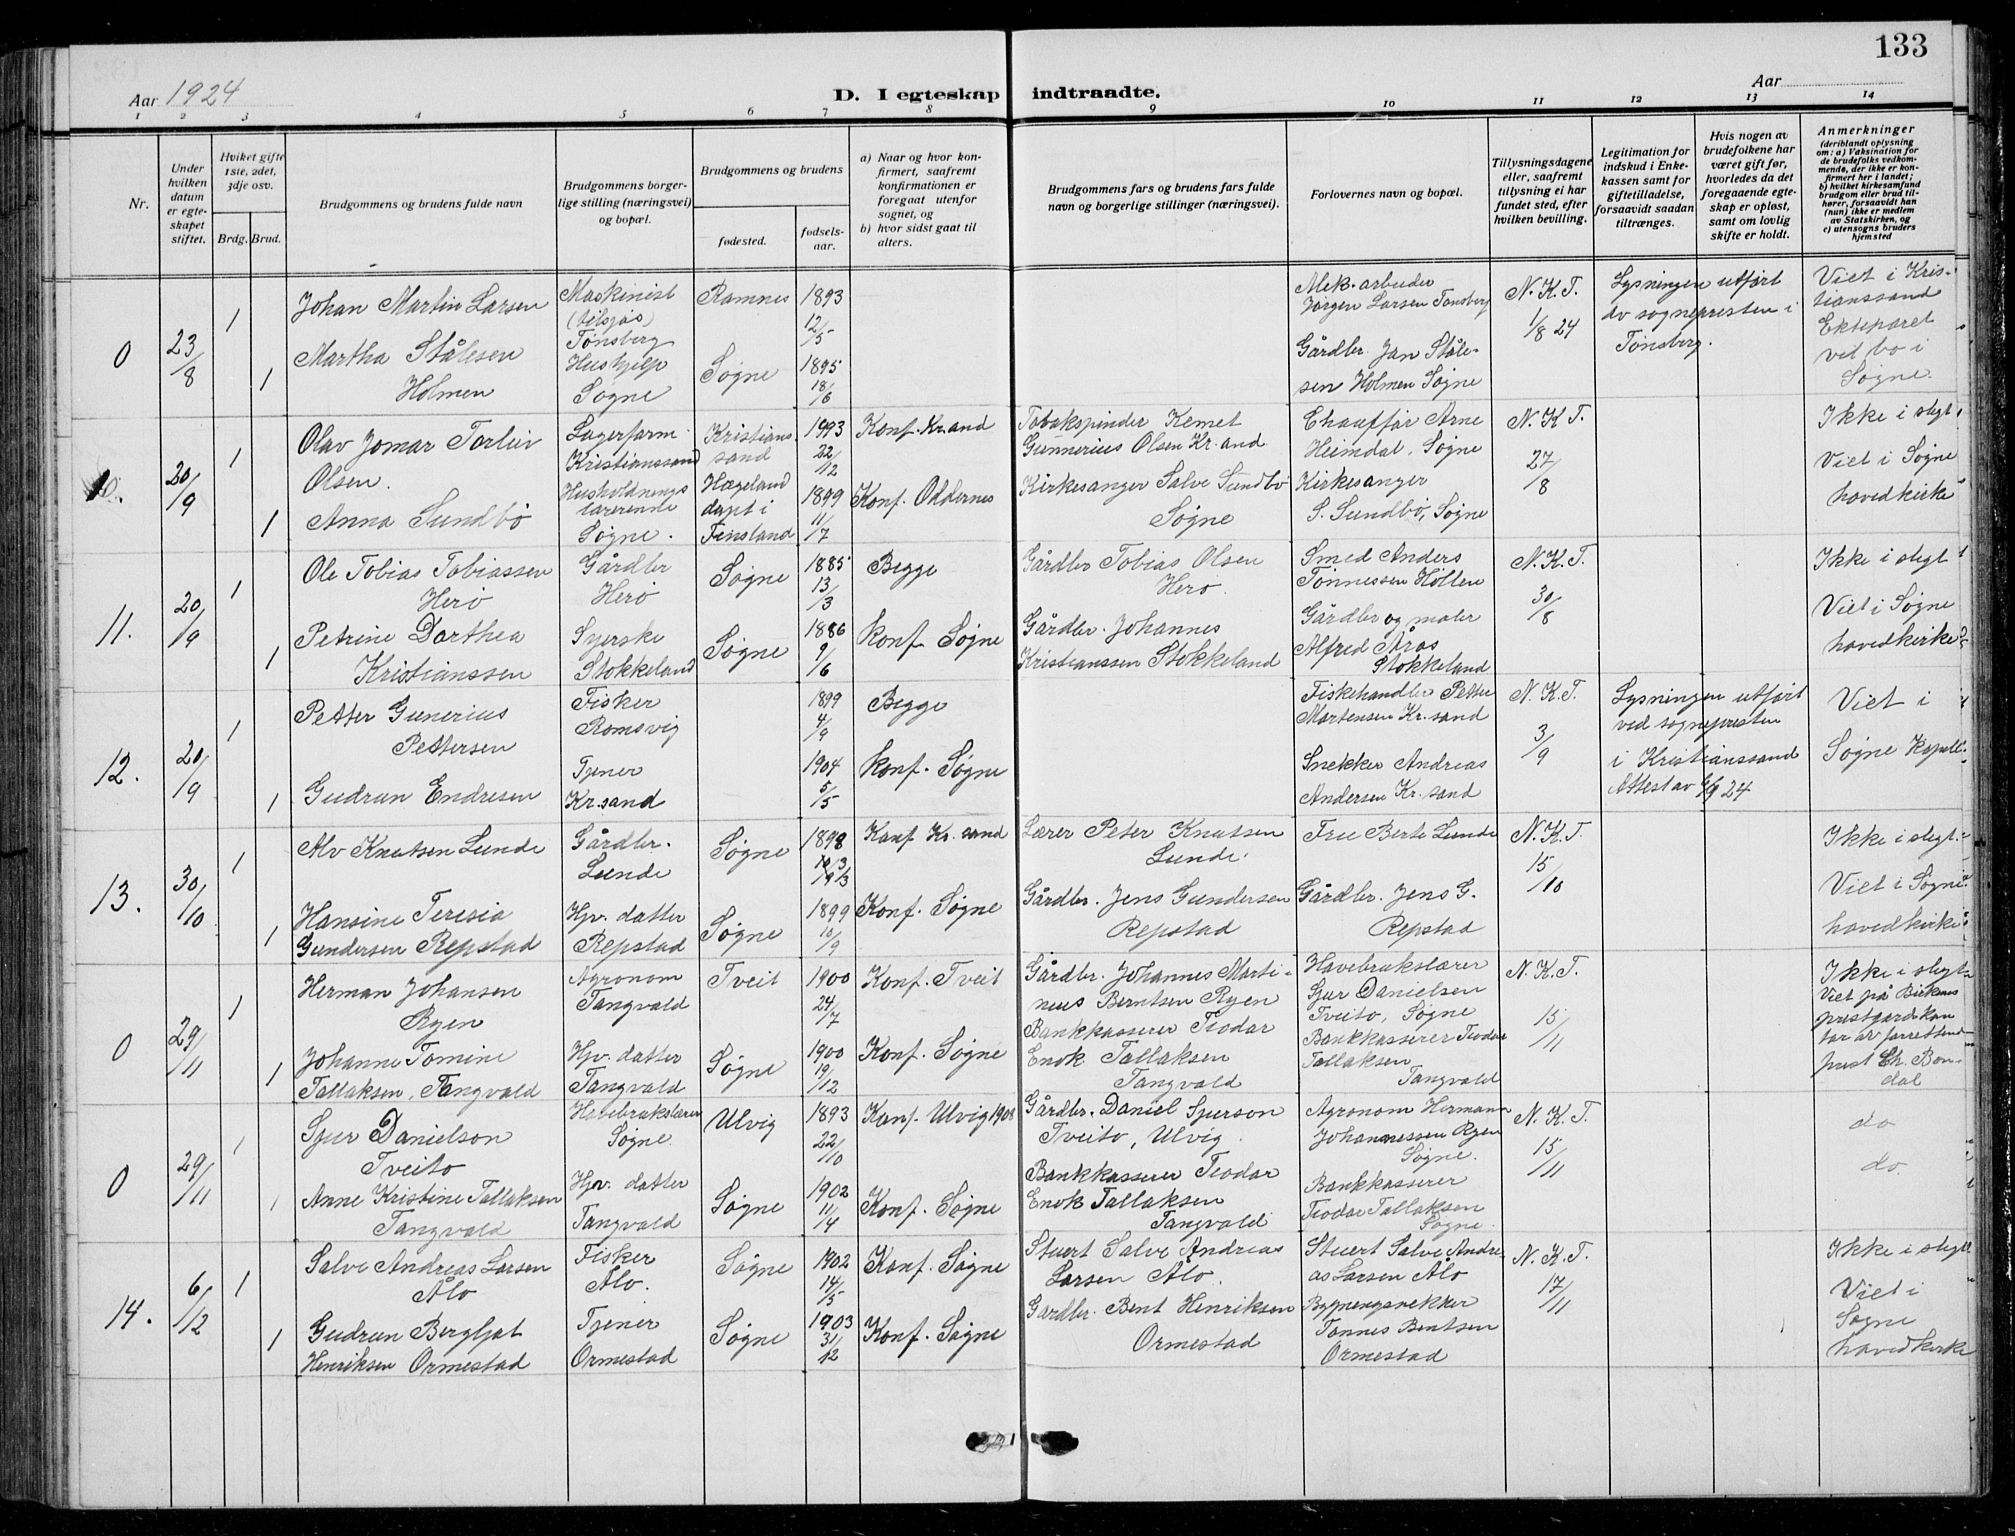 133
Aar 1924
D. I egteskap indtraadte.
Aar
1 2 3 4 5 6 7 8 9 10 11 12 13 14
Nr.
Under hvilken datum er egteskapet stiftet.
Hvilket gifte 1ste, 2det, 3dje osv.
Brdg. Brud.
Brudgommens og brudens fulde navn
Brudgommens borgerlige stilling (næringsvei) og bopæl.
Brudgommens og brudens
fødested.
fødselsaar.
a) Naar og hvor konfirmert, saafremt konfirmationen er foregaat utenfor sognet, og
b) hvor sidst gaat til alters.
Brudgommens fars og brudens fars fulde navn og borgerlige stillinger (næringsvei).
Forlovernes navn og bopæl.
Tillysningsdagene eller, saafremt tillysning ei har fundet sted, efter hvilken bevilling.
Legitimation for indskud i Enkekassen samt for giftetilladelse, forsaavidt saadan tiltrænges.
Hvis nogen av brudefolkene har været gift før, hvorledes da det foregaaende egteskap er opløst, samt om lovlig skifte er holdt.
Anmerkninger (deriblandt oplysning om: a) Vaksination for de brudefolks vedkommende, der ikke er konfirmert her i landet; b) hvilket kirkesamfund brudgom eller brud tilhører, forsaavidt han (hun) ikke er medlem av Statskirken, og c) utensogns bruders hjemsted
0
23/8
1
1
Johan Martin Larsen
Martha Stålesen
Holmen
Maskinist
(tilsjøs)
Tønsberg
Hushjelp
Søgne
Ramnes
Søgne
1893
12/5
1895
18/6
Mek. arbeider
Jørgen Larsen Tønsberg
Gårdbr. Jan Stålesen Holmen Søgne
N.K.T.
1/8 24
Lysningen utført
av sognepresten i
Tønsberg.
Viet i Kristianssand
Ekteparet
vil bo i
Søgne.
10.
20/9
1
1
Olav Jomar Torleiv
Olsen.
Anna Sundbø
Lagerform.
Kristianssand
Husholdnings
lærerinde
Søgne.
Kristianssand
Hægeland
døpt i
Finsland
1893
22/12
1899
11/7
Konf. Kr.sand
Konf. Oddernes
Tobakspinder Kemet
Gunnerius Olsen Kr.sand
Kirkesanger Salve Sundbø
Søgne
Chauffør Arne
Heimdal, Søgne
Kirkesanger
S. Sundbø, Søgne
N.K.T.
27/8
Ikke i slegt
Viet i Søgne
hovedkirke
11.
20/9
1
1
Ole Tobias Tobiassen
Herø
Petrine Dorthea
Kristianssen
Gårdbr
Herø
Syerske
Stokkeland
Søgne
Søgne
1885
13/3
1886
9/6
Begge
konf. Søgne
Gårdbr Tobias Olsen
Herø.
Gårdbr. Johannes
Kristianssen Stokkeland
Smed Anders
Tønnessen Holten
Gårdbr og maler
Alfred Årøs
Stokkeland
N.K.T.
30/8
Ikke i slegt
Viet i Søgne
hovedkirke
12.
20/9
1
1
Petter Gunerius
Pettersen
Gudrun Endresen
Fisker
Romsvig
Tjener
Kr.sand
1899
4/9
1904
5/5
Begge
konf. Søgne
Fiskehandler Petter
Martensen Kr.sand
Snekker Andreas
Andersen Kr.sand
N.K.T.
3/9
Lysningen utført
ved sognepresten
i Kristianssand
Attest av 6/9 24
Viet i
Søgne Kapell
13.
30/10
1
1
Alv Knutsen Lunde
Hansine Teresia
Gundersen Repstad
Gårdbr.
Lunde
Hjv. datter
Repstad
Søgne
Søgne
1898
19/3
1899
10/9
Konf Kr. sand
Konf. Søgne
Lærer Peter Knutsen
Lunde.
Gårdbr. Jens Gundersen
Repstad
Frue Berte Lunde
Gårdbr. Jens G.
Repstad
N.K.T.
15/10
Ikke i slegt.
Viet i Søgne
hovedkirke
0
29/11
1
1
Herman Johansen
Ryen
Johanne Tomine
Tallaksen, Tangvald
Agronom
Tangvald
Hjv. datter
Tangvald
Tveit
Søgne
1900
24/7
1900
19/12
Konf. Tveit
Konf. Søgne
Gårdbr. Johannes Martinius Berntsen Ryen
Bankkasserer Teodor
Enok Tallaksen
Tangvald
Havebrukslærer
Sjur Danielsen
Tveito, Søgne
Bankkasserer Teodor
Tallaksen
Tangvald
N.K.T.
15/11
Ikke i slegt
Viet på Birkenes
prestgaardskontor
prest Ch. Bondal
0
29/11
1
1
Sjur Danielson
Tveito
Anne Kristine Tallaksen
Tangvald
Havebrukslærer
Søgne
Hjv. datter
Tangvald
Ulvig
Søgne
1893
22/10
1902
11/4
Konf. Ulvig 1908
Konf. Søgne
Gårdbr. Daniel Sjurson
Tveito, Ulvig.
Bankkasserer Teodor
Enok Tallaksen
Tangvald
Agronom Hermann
Johannessen Ryen
Søgne.
Bankkasserer
Teodor Tallaksen
Søgne
N.K.T.
15/11
do
do.
14.
6/12
1
1
Salve Andreas Larsen
Ålo
Gudrun Bergljot
Henriksen Ormestad
Fisker
Ålo.
Tjener
Ormestad
Søgne
Søgne
1902
14/5
1903
31/12
Konf. Søgne
Konf. Søgne
Stuert Salve Andreas
Larsen Ålo.
Gårdbr. Bent Henriksen
Ormestad
Stuert Salve Andreas Larsen Ålo
Bygningsnekker
Tønnes Bentsen
Ormestad
N.K.T.
17/11
Ikke i slegt
Viet i
Søgne
hovedkirke